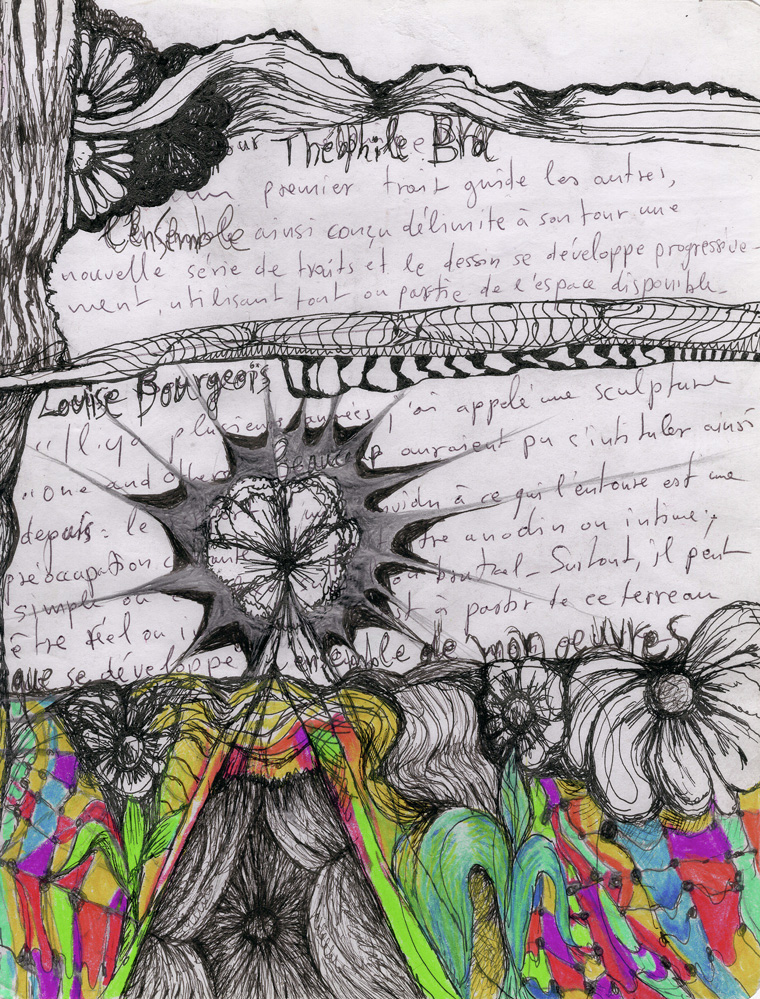 our Théophile Bra
un premier trait guide les autres,
l'ensemble ainsi conçu délimite à son tour une
nouvelle série de traits et le dessin se développe progressive-
ment, utilisant tout ou partie de l'espace disponible-
Louise Bourgeois
"Il y a plusieurs années j'ai appelé une sculpture
"one and others Beaucoup auraient pu s'intituler ainsi
depuis: le à ce qui l'entoure est une
préoccupation anodin ou intime;
simple ou brutal- Surtout, il peut
être réel ou à partir de ce terreau
que se développe ensemble de mon oeuvres